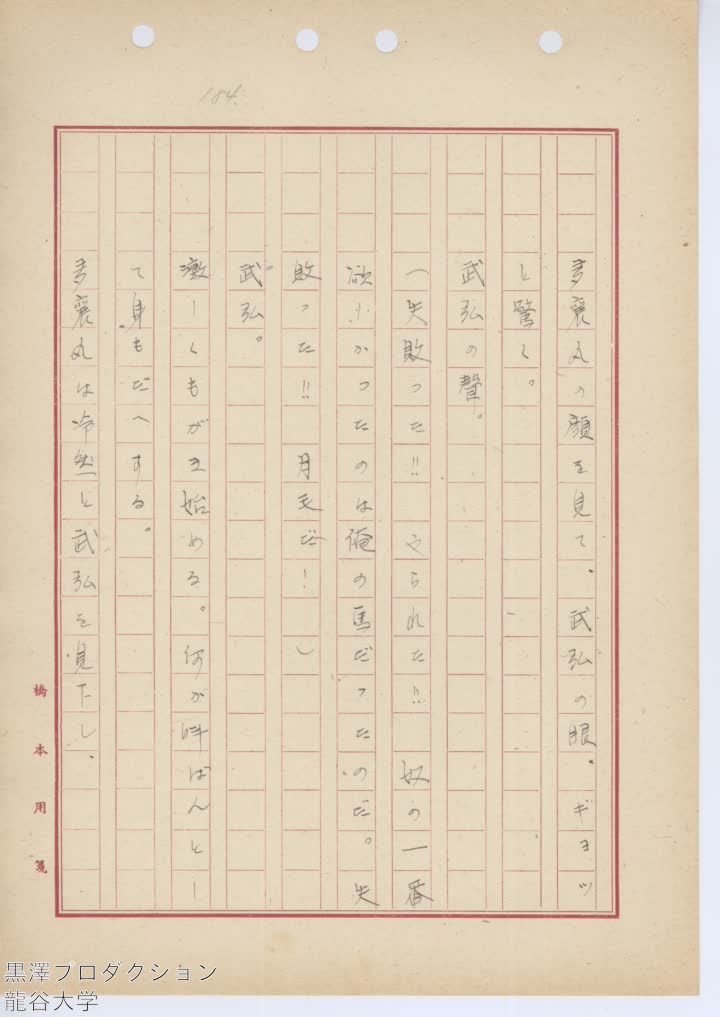 184.
多襄丸の顔を見て、武弘の眼、ギョッ
と驚く。
武弘の聲。
(失敗った!! やられた!! 奴の一番
欲しかったのは俺の馬だったのだ。失
敗った!! 月毛だ! )
武弘。
激しくもがき始める。何か呼ばんとし
て身もだへする。
多襄丸は冷然と武弘を見下し、
橋本用箋
黒澤プロダクション
龍谷大学